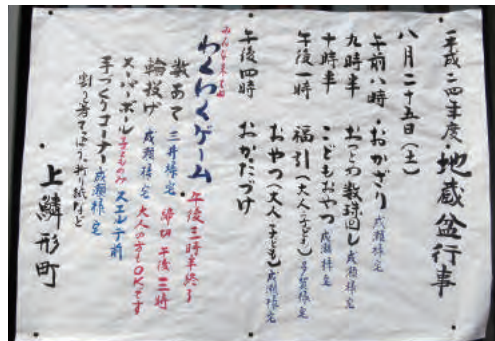 平成二四年度・地蔵盆行事
八月二十五日（土）
午前八時・おかざり 成瀬様宅
九時半 おっとめ数珠回し 成瀬様宅
十時半 こどもおやつ 成瀬様宅
午後一時 福引（大人・子ども）多賀様宅
おやつ（大人・子ども）成瀬様宅
午後四時 おかたづけ
みんなきてね
わくわくゲーム 午後三時半終了
数あて 三井様宅 締切 午後三時
輪投げ 成瀬様宅 大人の方もOKです
スーパーボール 子どものみ スエレテ前
手づくりコーナー 成瀬様宅
割り箸てっぽう、折り紙など
上鱗形町